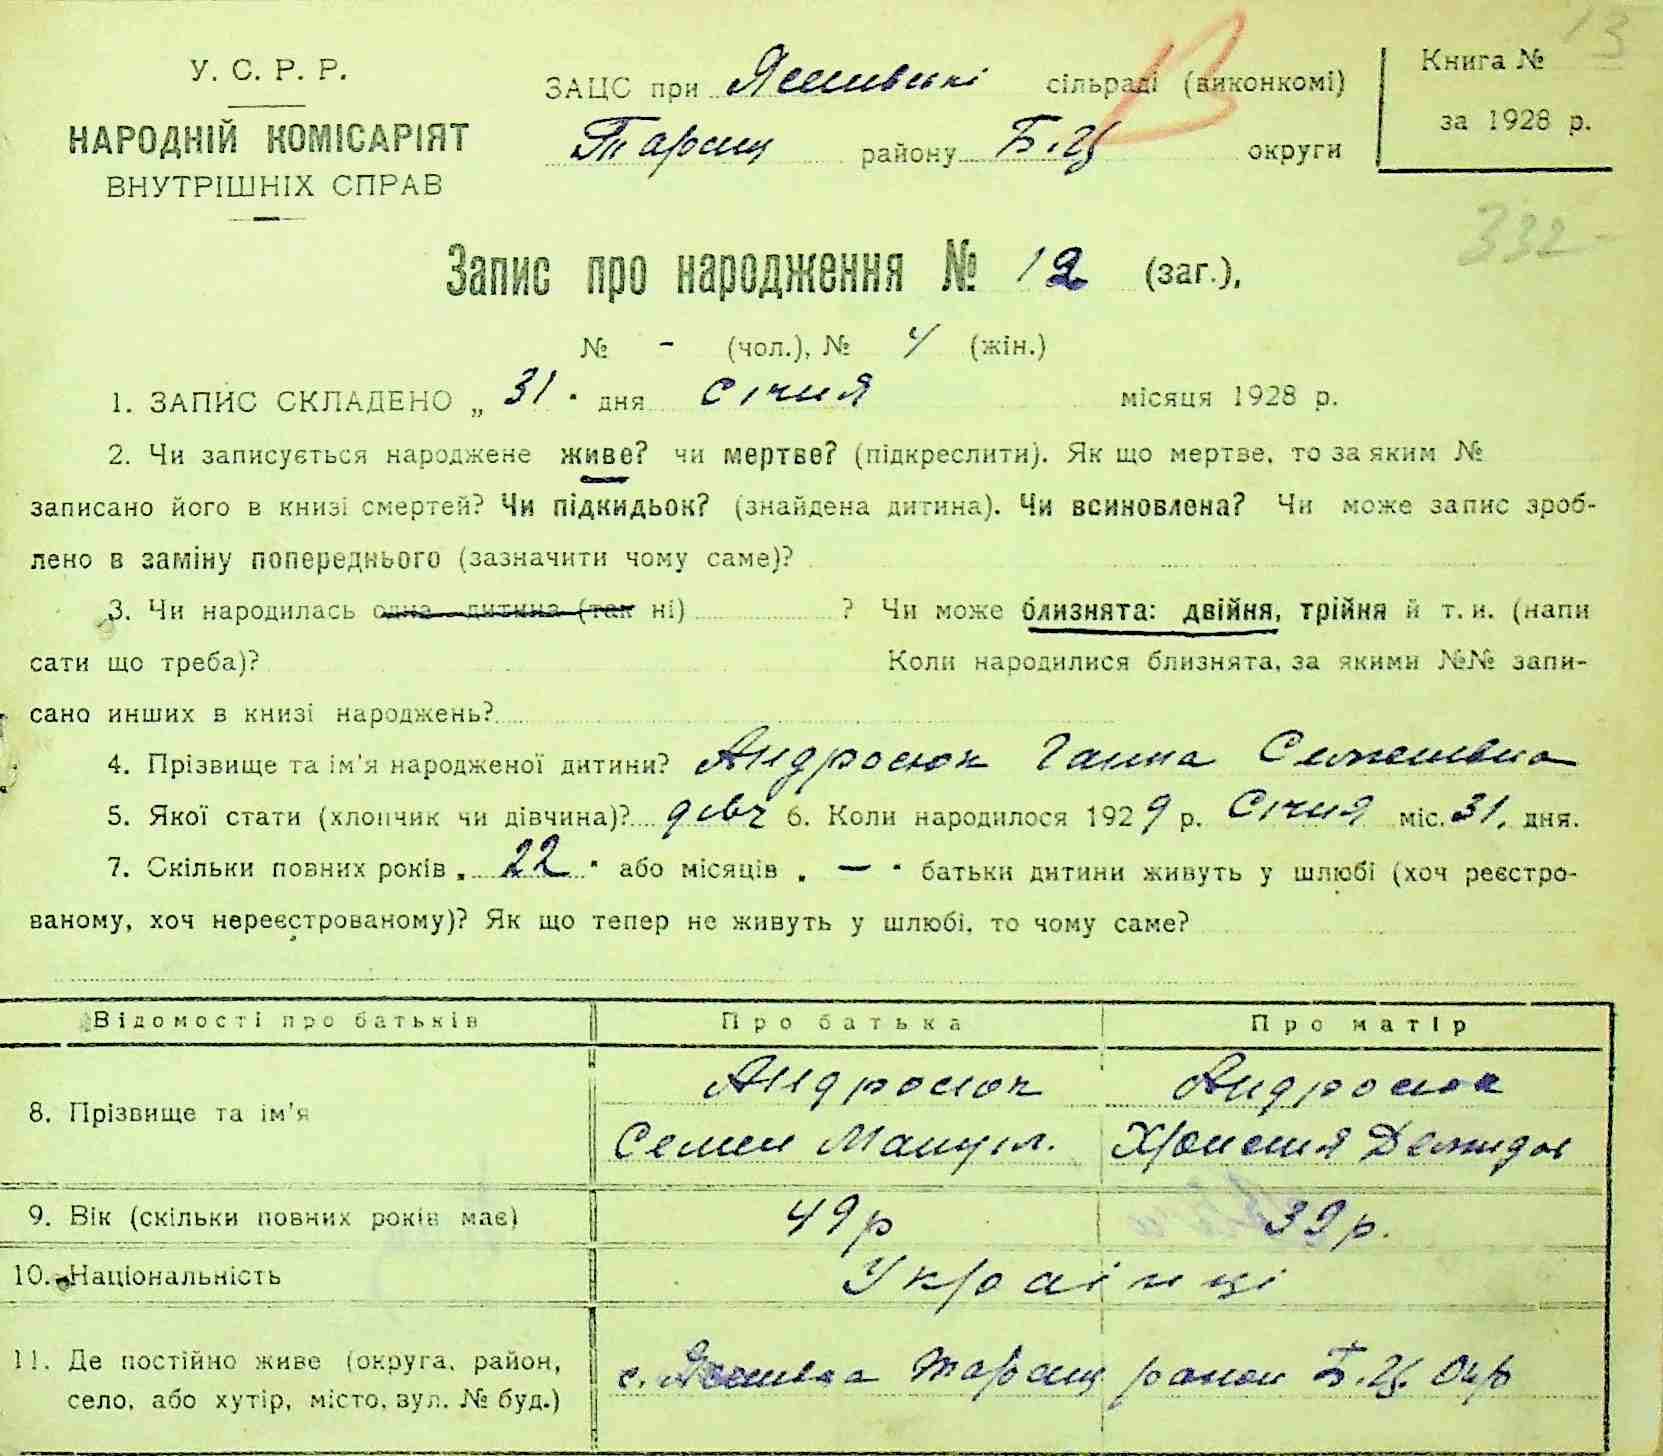 У. С. Р. Р.
НАРОДНІЙ КОМІСАРІЯТ
ВНУТРІШНІХ СПРАВ
ЗАЦС при Лісивські сільраді (виконкомі)
Таращ району Б.Ц округи
Книга № 13
за 1928 р.
332
Запис про народження № 12 (заг.),
№ - (чол.), № 4 (жін.)
1. ЗАПИС СКЛАДЕНО „ 31 " дня Січня місяця 1928 р.
2. Чи записується народжене живе? чи мертве? (підкреслити). Як що мертве, то за яким №
записано його в книзі смертей? Чи підкидьок? (знайдена дитина). Чи всиновлена? Чи може запис зроб-
лено в заміну попереднього (зазначити чому саме)?
3. Чи народилась одна дитина (так ні) ? Чи може близнята: двійня, трійня й т. и. (напи
сати що треба)? Коли народилися близнята, за якими №№ запи-
сано инших в книзі народжень?
4. Прізвище та ім'я народженої дитини? Андросюк Ганна Семенівна
5. Якої стати (хлопчик чи дівчина)? дівч 6. Коли народилося 1929 р. Січня міс. 31. дня.
7. Скільки повних років „ 22 " або місяців „ — " батьки дитини живуть у шлюбі (хоч реєстро-
ваному, хоч нереєстрованому)? Як що тепер не живуть у шлюбі, то чому саме?
Відомості про батьків Про батька Про матір
8. Прізвище та ім'я Андросюк Андросюк
Семен Мануіл. Хронсия Демидов
9. Вік (скільки повних років має) 49р 39р.
10. Національність Українці
11. Де постійно живе (округа, район,
село, або хутір, місто, вул. № буд.) с. Таращ район Б.Ц. Окр